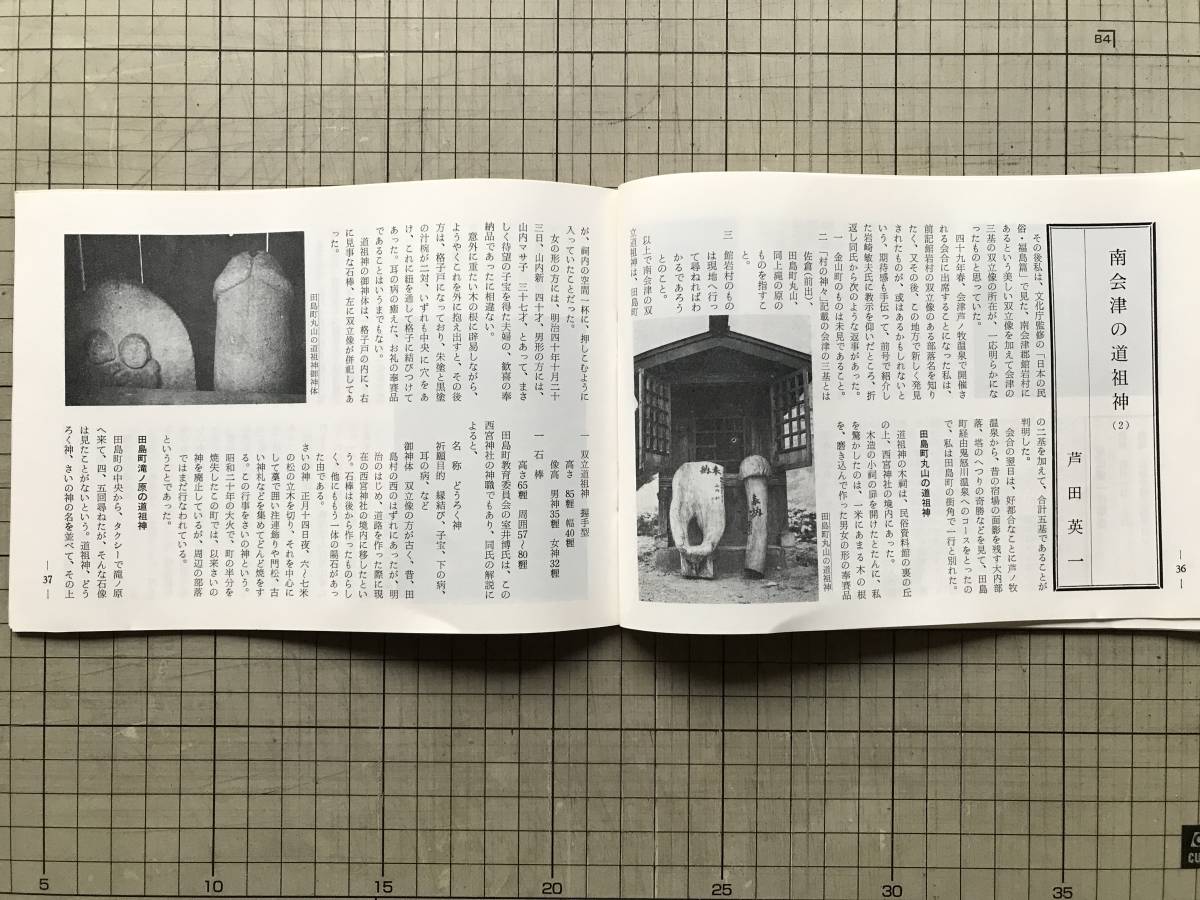 南会津の道祖神
(2)
芦田英一
その後私は、文化庁監修の「日本の民
俗・福島篇」で見た、南会津郡館岩村に
あるという美しい双立像を加えて会津の
三基の双立像の所在が、一応明らかにな
ったものと思っていた。
四十九年春、会津芦ノ牧温泉で開催さ
れる会合に出席することになった私は、
前記館岩村の双立像のある部落名を知り
たく、又その後、この地方で新しく発見
されたものが、或はあるかもしれないと
いう、期待感も手伝って、前号で紹介し
た岩崎敏夫氏に教示を仰いだところ、折
返し同氏から次のような返事があった。
一 金山町のものは未見であること。
二 「村の神々」記載の会津の三基とは
佐倉(前出)、
田島町丸山、
同上滝の原の
ものを指すこ
と。
三 館岩村のもの
は現地へ行っ
て尋ねればわ
かるであろう
とのこと。
以上で南会津の双
立道祖神は、田島町
の二基を加えて、合計五基であることが
判明した。
会合の翌日は、好都合なことに芦ノ牧
温泉から、昔の宿場の面影を残す大内部
落、塔のへつりの奇勝などを見て、田島
町経由鬼怒川温泉へのコースをとったの
で、私は田島町の街角で一行と別れた。
田島町丸山の道祖神
道祖神の木祠は、民俗資料館の裏の丘
の上、西宮神社の境内にあった。
木造の小祠の扉を開けたとたんに、私
を驚かしたのは、一米にあまる木の根
を、磨き込んで作った男女の形の奉賽品
田島町丸山の道祖神
奉納
奉納
36
が、祠内の空間一杯に、押しこむように
入っていたことだった。
女の形の方には、明治四十年十月二十
三日、山内新 四十才、男形の方には、
山内マサ子 三十七才、とあって、まさ
しく待望の子宝を得た夫婦の、歓喜の奉
納品であったに相違ない。
意外に重たい木の根に辟易しながら、
ようやくこれを外に抱え出すと、その後
方は、格子戸になっており、朱塗と黒塗
の汁椀が二対、いずれも中央に穴をあ
け、これに紐を通して格子に結びつけて
あった。耳の病の癒えた、お礼の奉賽品
であることはいうまでもない。
道祖神の御神体は、格子戸の内に、右
に見事な石棒、左に双立像が併祀してあ
った。
田島町丸山の道祖神御神体
一 双立道祖神 握手型
高さ 85糎 幅40糎
像高 男神35糎 女神32糎
一 石棒
高さ65糎 周囲57〜80糎
田島町教育委員会の室井博氏は、この
西宮神社の神職でもあり、同氏の解説に
よると、
名称 どうろく神
祈願目的 縁結び、子宝、下の病、
耳の病、など
御神体 双立像の方が古く、昔、田
島村の西のはずれにあったが、明
治のはじめ、道路を作った際に現
在の西宮神社の境内に移したとい
う。石棒は後から作ったものらし
く、他にももう一体の陽石があっ
た由である。
さいの神 正月十四日夜、六〜七米
の松の立木を切り、それを中心に
して藁で囲い注連飾りや門松、古
い神札などを集めてどんど焼をす
る。この行事をさいの神という。
昭和二十年の大火で、町の半分を
焼失したこの町では、以来さいの
神を廃止しているが、周辺の部落
ではまだ行なわれている。
ということであった。
田島町滝ノ原の道祖神
田島町の中央から、タクシーで滝ノ原
へ来て、四、五回尋ねたが、そんな石像
は見たことがないという。道祖神、どう
ろく神、さいの神の名を並べて、その上
37
B4
5
10
15
20
25
30
35
CU